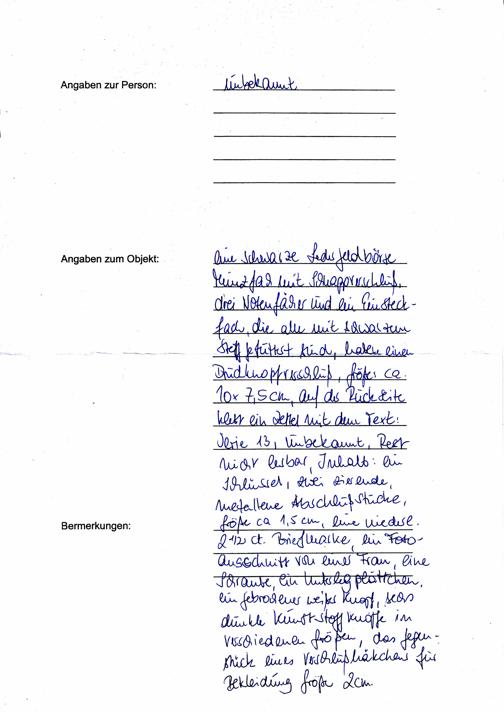 Angaben zur Person: Unbekannt
Angaben zum Objekt: Eine schwarze Ledergeldbörse
Münzfach mit Schnappverschluß,
drei Notenfächer und ein Einsteck-
fach, die alle mit schwarzem
Stoff gefüttert sind, haben einen
Druckknopfverschluß, Größe ca.
10 x 7,5 cm, auf der Rückseite
klebt ein Zettel mit dem Text:
Serie 13, Unbekannt, Rest
nicht lesbar, Inhalt: ein
Schlüssel, zwei zierende,
metallene Abschlußstücke,
Größe ca 1,5 cm, eine niederl.
Bermerkungen: 2 1/2 ct. Briefmarke, ein Foto-
ausschnitt von einer Frau, eine
Schraube, ein Unterlegplättchen,
ein gebrochener weißer Knopf, sechs
dunkle Kunststoffknöpfe in
verschiedenen Größen, das Gegen-
stück eines Verschlußhäkchens für
Bekleidung Größe 2cm